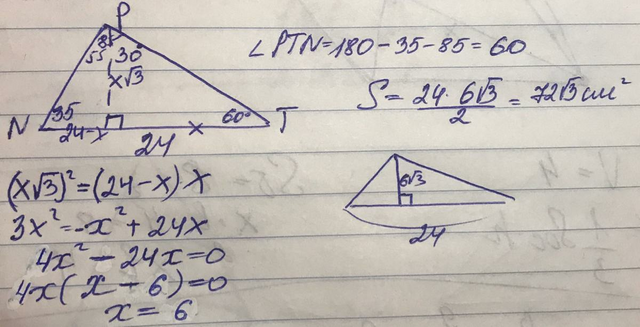 P
85
55 30°
x√3
35
60°
N
24-x
x
T
24
∠PTN=180-35-85=60
S=24·6√3/2=72√3 см²
(x√3)²=(24-x)x
3x²=-x²+24x
4x²-24x=0
4x(x-6)=0
x=6
6√3
24